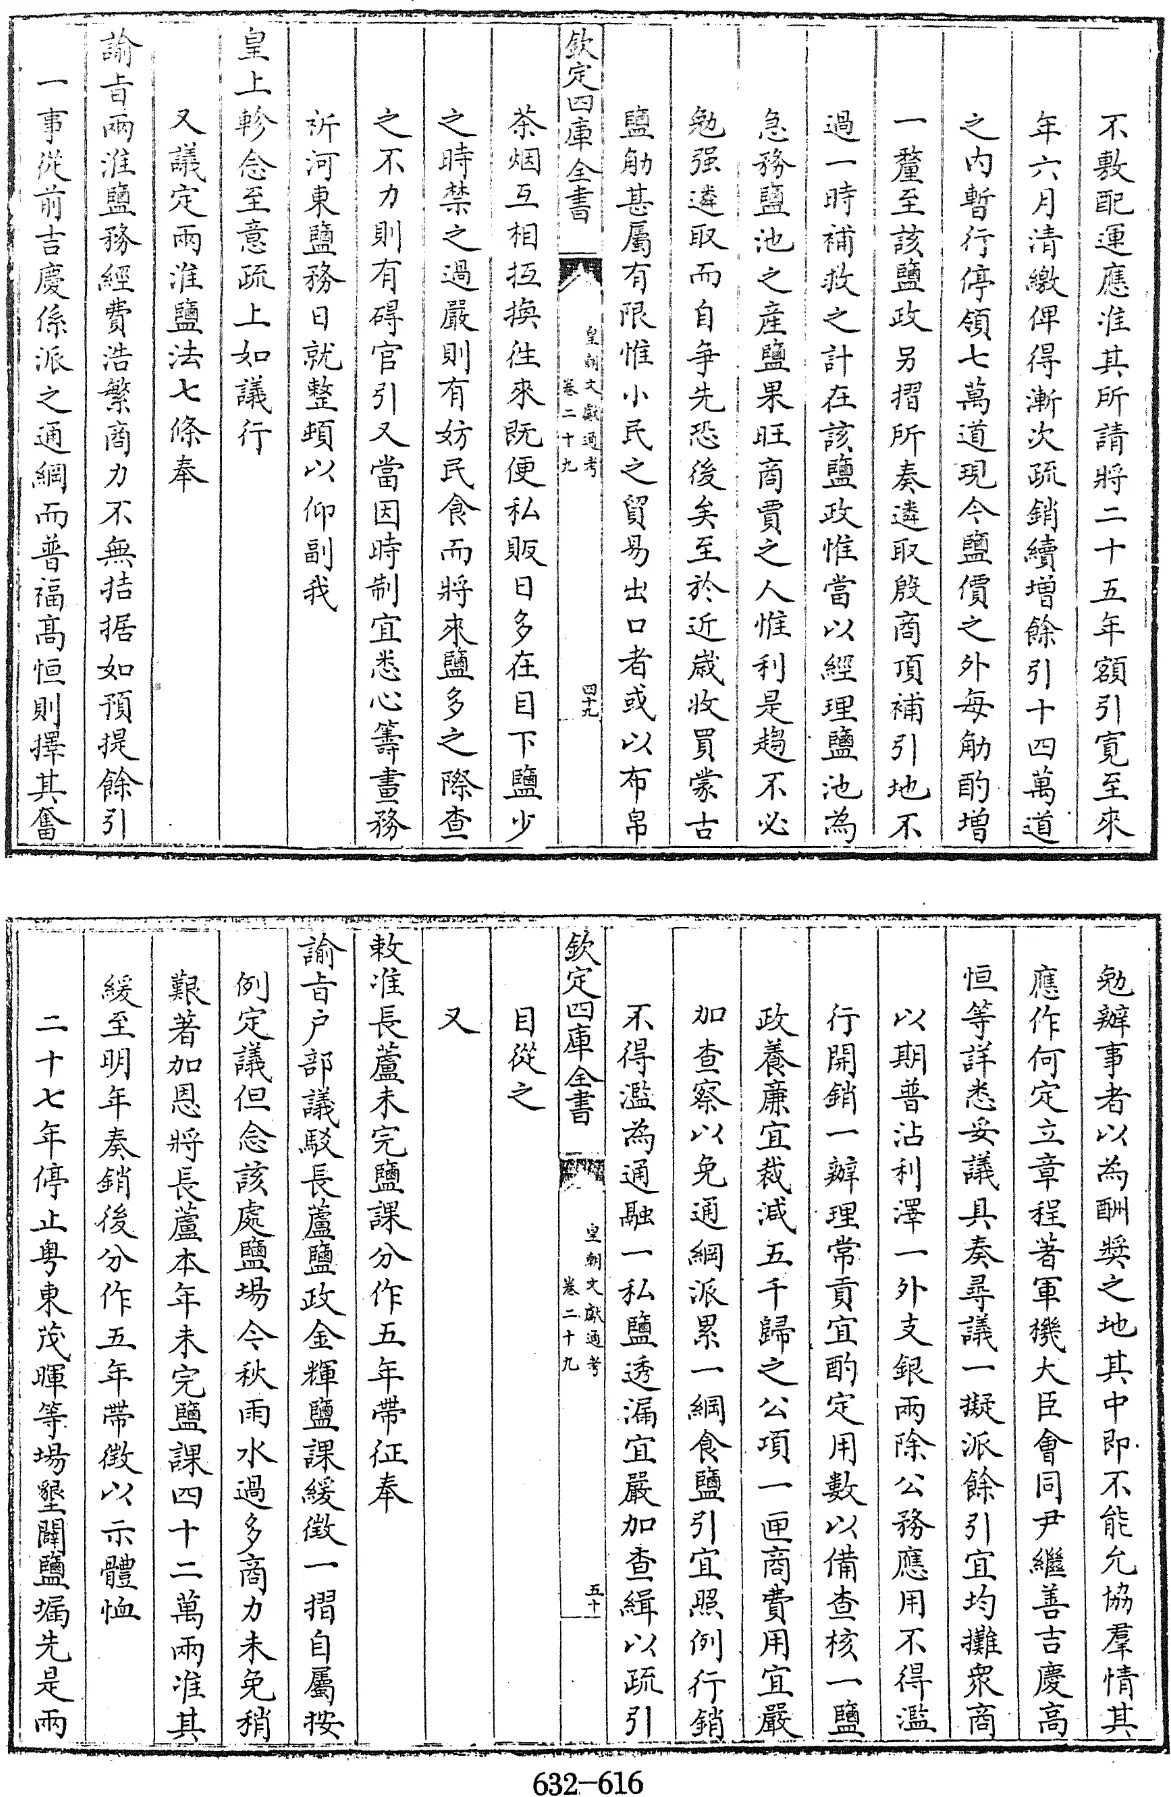 不敷配運應准其所請將二十五年額引寛至來
年六月清繳俾得漸次疏銷續増餘引十四萬道
之内暫行停領七萬道現今鹽價之外每觔酌増
一釐至該鹽政另摺所奏遴取殷商頂補引地不
過一時補救之計在該鹽政惟當以經理鹽池為
急務鹽池之産鹽果旺商賈之人惟利是趨不必
勉强遴取而自争先恐後矣至於近嵗收買蒙古
鹽觔甚屬有限惟小民之貿易出口者或以布帛
欽定四庫全書
皇朝文獻通考
卷二十九
四十九
茶烟互相抵換徃來既便私販日多在目下鹽少
之時禁之過嚴則有妨民食而將來鹽多之際查
之不力則有碍官引又當因時制宜悉心籌畫務
祈河東鹽務日就整頓以仰副我
皇上軫念至意疏上如議行
又議定兩淮鹽法七條奉
諭㫖兩淮鹽務經費浩繁商力不無拮据如預提餘引
一事從前吉慶係派之通綱而普福髙恒則擇其奮
勉辦事者以為酬奨之地其中即不能允協羣情其
應作何定立章程著軍機大臣會同尹繼善吉慶高
恒等詳悉妥議具奏尋議一擬派餘引宜均攤衆商
以期普沾利澤一外支銀兩除公務應用不得濫
行開銷一辦理常貢宜酌定用數以備查核一鹽
政養廉宜裁減五千歸之公項一匣商費用宜嚴
加查察以免通綱派累一綱食鹽引宜照例行銷
不得濫為通融一私鹽透漏宜嚴加查緝以疏引
欽定四庫全書
皇朝文獻通考
卷二十九
五十
目從之
又
敕准長蘆未完鹽課分作五年帶征奉
諭㫖户部議駁長蘆鹽政金輝鹽課緩徴一摺自屬按
例定議但念該處鹽場今秋雨水過多商力未免稍
艱著加恩將長蘆本年未完鹽課四十二萬兩准其
緩至明年奏銷後分作五年帶徴以示體恤
二十七年停止粤東茂暉等場墾闢鹽塥先是兩
632—616